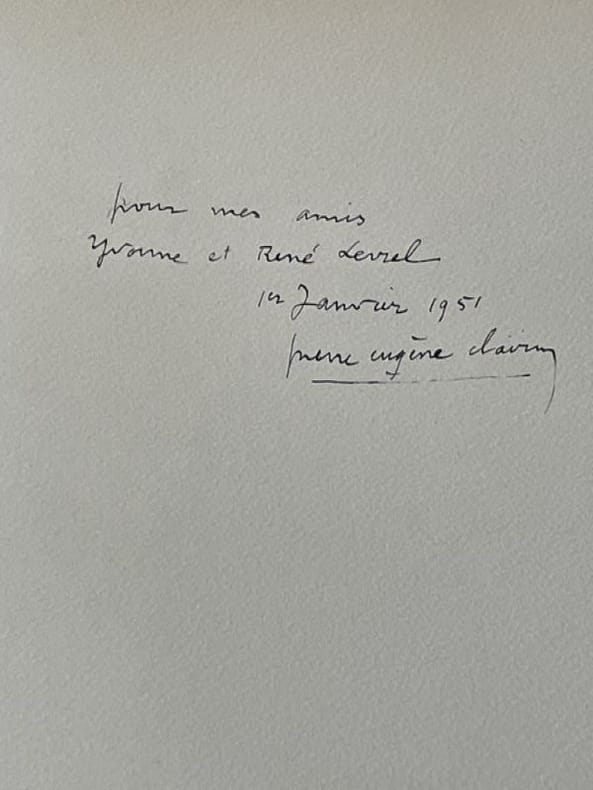 pour mes amis
Yvonne et René Levrel
1er Janvier 1951
pierre eugène clairin